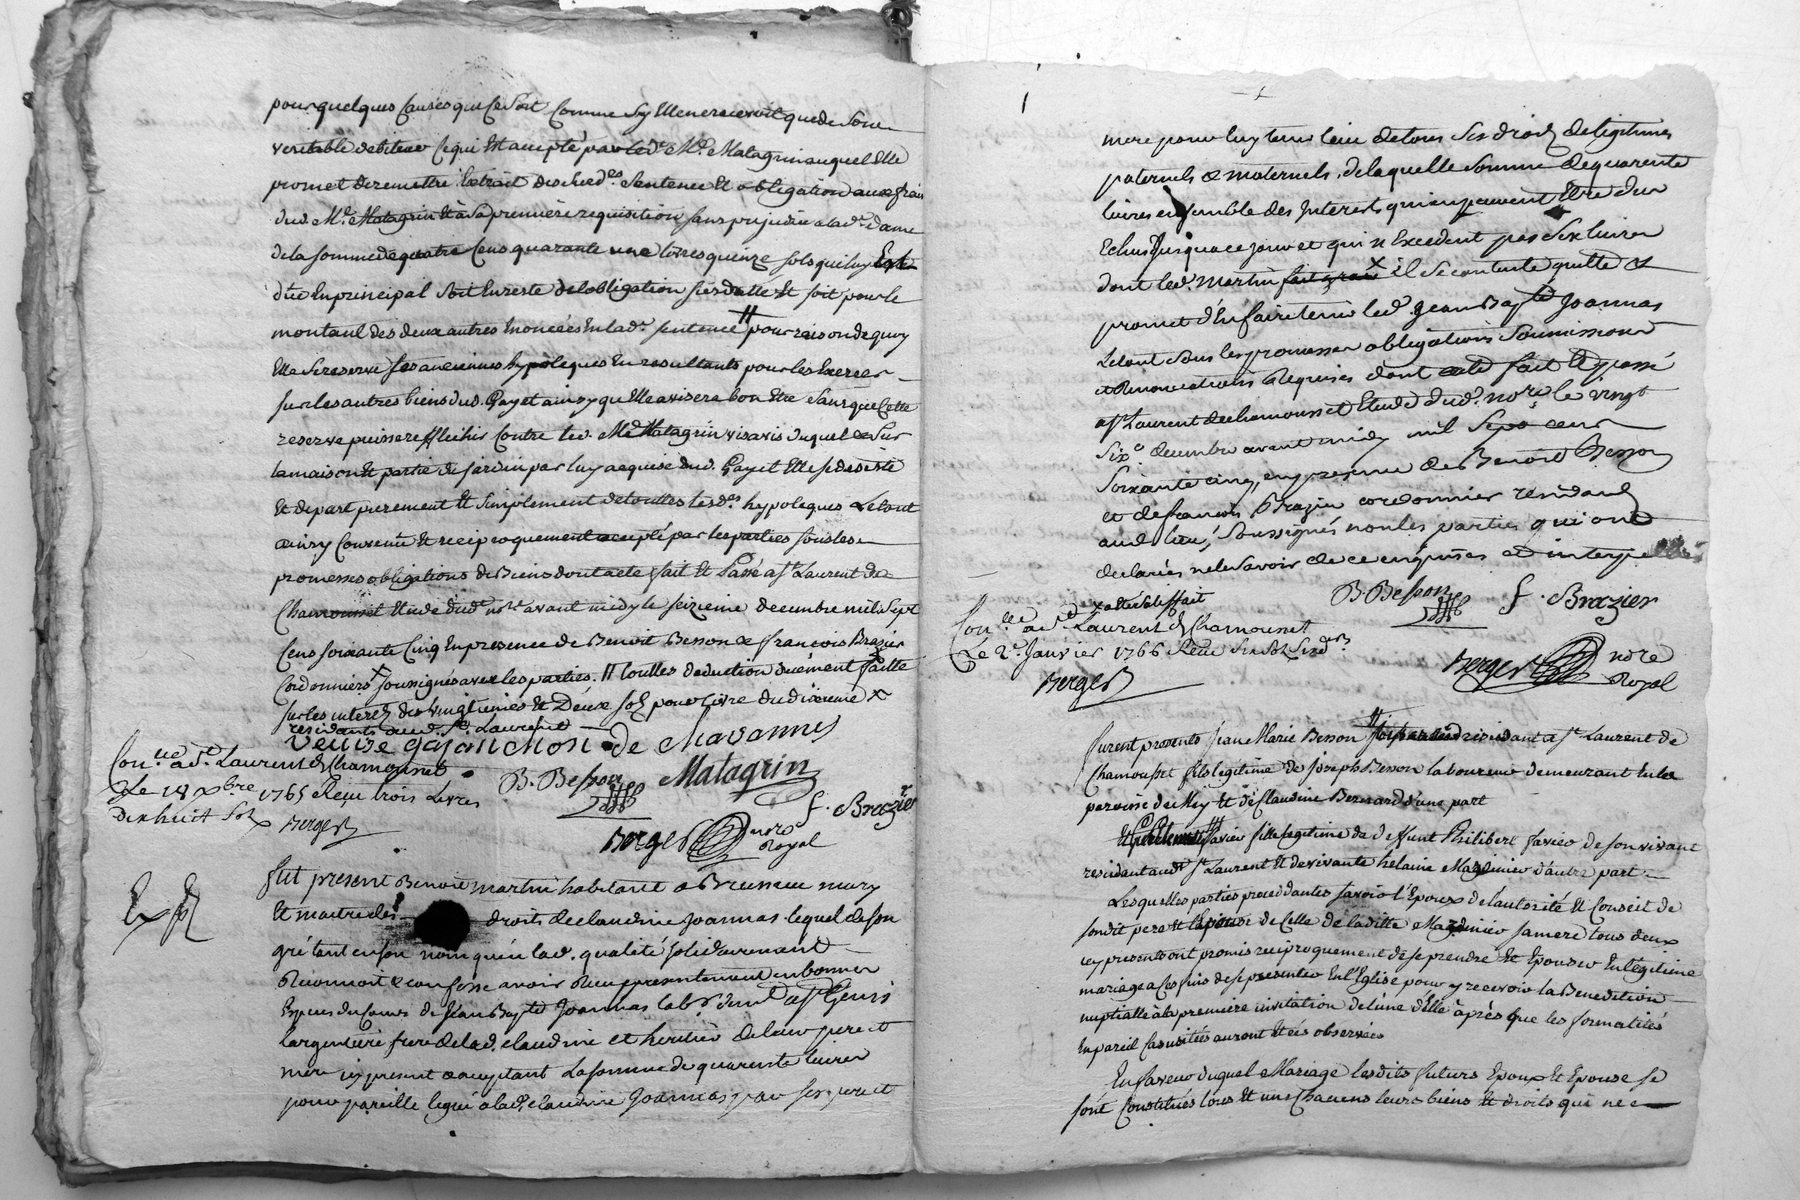 pour quelques causes que ce soit comme sy elle ne recevoit que de son
veritable debiteur ce qui est accepté par led. Me. Matagrin auquel elle
promet de remettre extrait desd. sentence et obligation aux frais
dud. Me. Matagrin et à sa première requisition sans prejudice a lad. dame
de la somme de quatre cens quarante une livres quinze sols qui luy est
düe en principal soit en reste de lobligation susdatte et soit pour le
montant des deux autres enoncées en lad. sentence # pour raison de quoy
elle se reserve ses anciennes hypoteques en resultants pour les exercer
sur les autres biens dud. Gayet ainsy qu'elle avisera bon etre sans que cette
reserve puisse reflechir contre led. Me Matagrin vis avis duquel & sur
la maison et partie de jardin par luy acquise dud. Gayet elle se desiste
et depart purement et simplement de touttes lesd. hypoteques Le tout
ainsy convenu et reciproquement accepté par les parties sous les
promesses obligations de Biens dont acte fait et Passé a St. Laurent de
Chamousset etude dud. nore avant midy le seizieme decembre mil sept
cens soixante cinq en presence de Benoit Besson & françois Brazier
Cordonniers x soussignés avec les parties. # touttes deduction duëment faitte
sur les interets des vingtiemes et Deux sols pour livre du dixieme x
residants aud. St. Laurent
veuve gajan Mon de Mavannes
Con.lle a St. Laurent de Chamousset
Le 18 xbre 1765 Reçu trois Livres
dix huit sols Berger
B. Besson Matagrin
F. Brazier
Berger nore
Royal
Exp
fut present Benoit martin habitant a Brussieu mary
et maitre des droits de claudine Joannas lequel de son
gré tant en son nom qu'en lad. qualité solidairement
Reconnoit & confesse avoir Reçu presentement en bonnes
Especes du cours de Jean Bapte Joannas labr. demt. a St. Genis
Largentiere frere de lad. claudine et heritier de leur pere et
mere icy present & acceptant La somme de quarente livres
pour pareille leguée a lad. claudine Joannas par ses pere et
mere pour luy tenir lieu de tous ses droits de legitimes
paternels & maternels, de laquelle somme de quarente
livres ensemble des Interests qui en peuvent etre dus
Echus Jusqua ce jour et qui n'Excedent pas six livres
dont led. martin fait x il se contente quitte et
promet d'en faire tenir led. Jean Bapte Joannas
Le tout sous les promesses obligations soumissions
et Renonciations Requises dont acte fait et passé
a St. Laurent de chamousset Etude dud. nore. le vingt
six. decembre avant midy mil sept cens
soixante cinq, en presence de Benoit Besson
et de francois Brazier cordonnier residants
aud. lieu, soussignés non les parties qui ont
declarées ne le savoir de ce enquises et interpellées
x acte de leffait
B. Besson F. Brazier
Con.lle a St. Laurent de Chamousset
Le 2e. Janvier 1766 Reçu
Berger
Berger nore
Royal
furent presents Jean Marie Besson residant a St. Laurent de
Chamousset fils legitime de Joseph Besson laboureur demeurant en la
paroisse de Mey et de Claudine Bernard d'une part
Et favier fille legitime de deffunt Philibert favier de son vivant
residant aud. St. Laurent et de vivante helaine Mazenier d'autre part
Lesquelles parties procedantes savoir l'Epoux de l'autorité et Conseil de
sondit pere et lepouse de celle de laditte Mazenier sa mere tous deux
icy presents ont promis reciproquement de se prendre et epouser en legitime
mariage a ces fins de se presenter en l'Eglise pour y recevoir la Benediction
nuptialle a la premiere invitation de l'une d'elle après que les formalités
en pareil cas usitées auront etées observées
En faveur duquel Mariage lesdits futurs Epoux et Epouse se
sont constitués tous et uns Chacuns leurs biens et droits qui ne